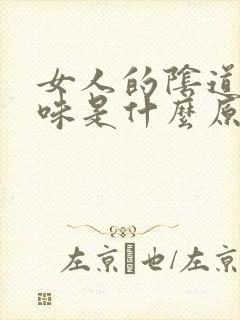 女人的陰道
味是什麼原
左京也/左京